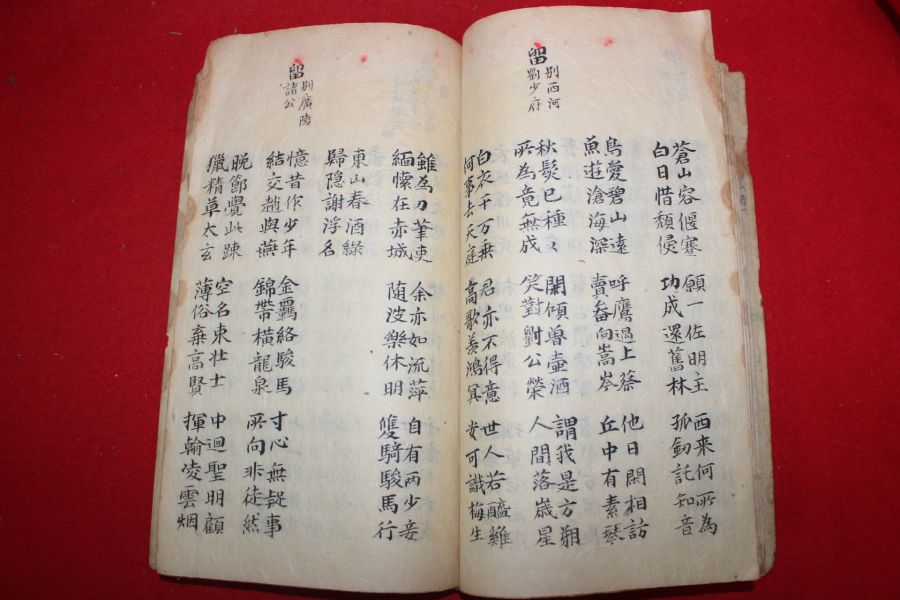 蒼山容偃蹇
白日惜頹侵
願一佐明主
功成還舊林
西来何所為
孤劍託知音
鳥愛碧山遠
魚遊滄海深
呼鷹過上蔡
賣畚向嵩岑
他日閑相訪
丘中有素琴
留
别西河
劉少府
秋髮已種々
所為竟無成
閑傾魯壺酒
笑對劉公榮
謂我是方朔
人間落歲星
白衣千万乗
何事去天庭
君亦不得意
高歌羨鴻冥
世人若醯雞
安可識梅生
雖為刀筆吏
緬懷在赤城
余亦如流萍
随波樂休明
自有两少妾
雙騎駿馬行
東山春酒綠
歸隐謝浮名
留
别廣陵
諸公
憶昔作少年
結交趙與燕
金羈絡駿馬
錦帶橫龍泉
寸心無疑事
所向非徒然
晚節覺此踈
獵精草太玄
空名束壮士
薄俗棄高賢
中迴聖明顧
揮翰凌雲烟